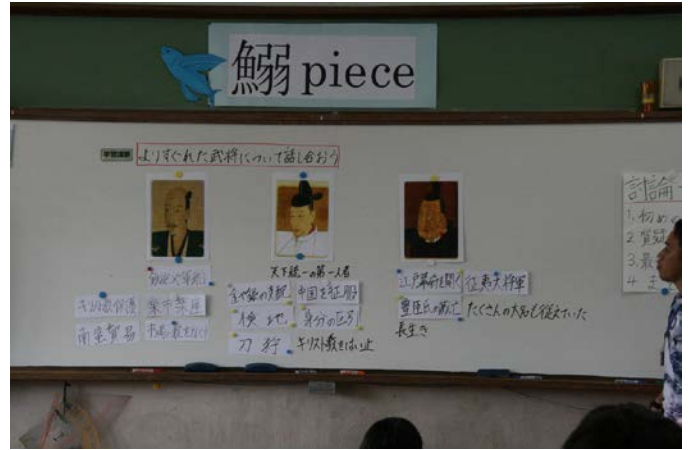 鰯 piece
学習課題 よりすぐれた武将について話し合おう
キリスト教保護
楽市楽座
南蛮貿易
天下統一の第一人者
中国を征服
検地
身分の区別
刀狩
キリスト教をはい止
江戸幕府を開く
征夷大将軍
豊臣氏の滅亡
たくさんの大名を従えていた
長生き
討論
1. 初め
2. 質疑
3. 最
4 ま